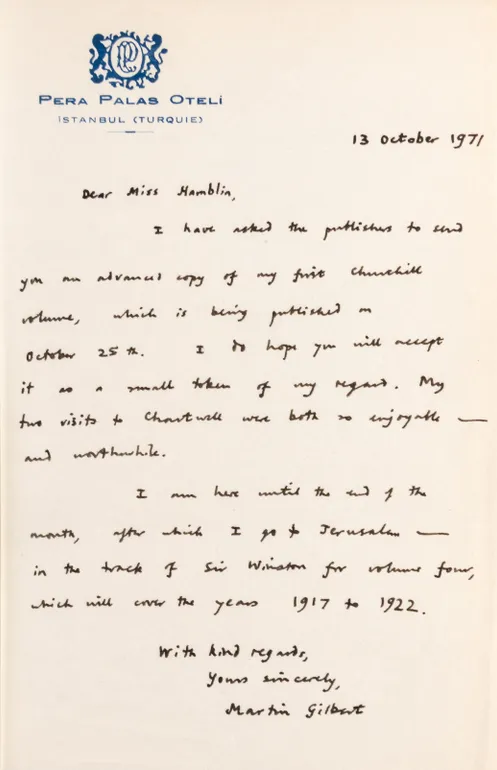 PP
PERA PALAS OTELİ
İSTANBUL (TURQUIE)
13 October 1971
Dear Miss Hamblin,
I have asked the publishers to send
you an advanced copy of my first Churchill
volume, which is being published on
October 25th. I do hope you will accept
it as a small token of my regard. My
two visits to Chartwell were both so enjoyable —
and worthwhile.
I am here until the end of the
month, after which I go to Jerusalem —
in the track of Sir Winston for volume four,
which will cover the years 1917 to 1922.
With kind regards,
Yours sincerely,
Martin Gilbert